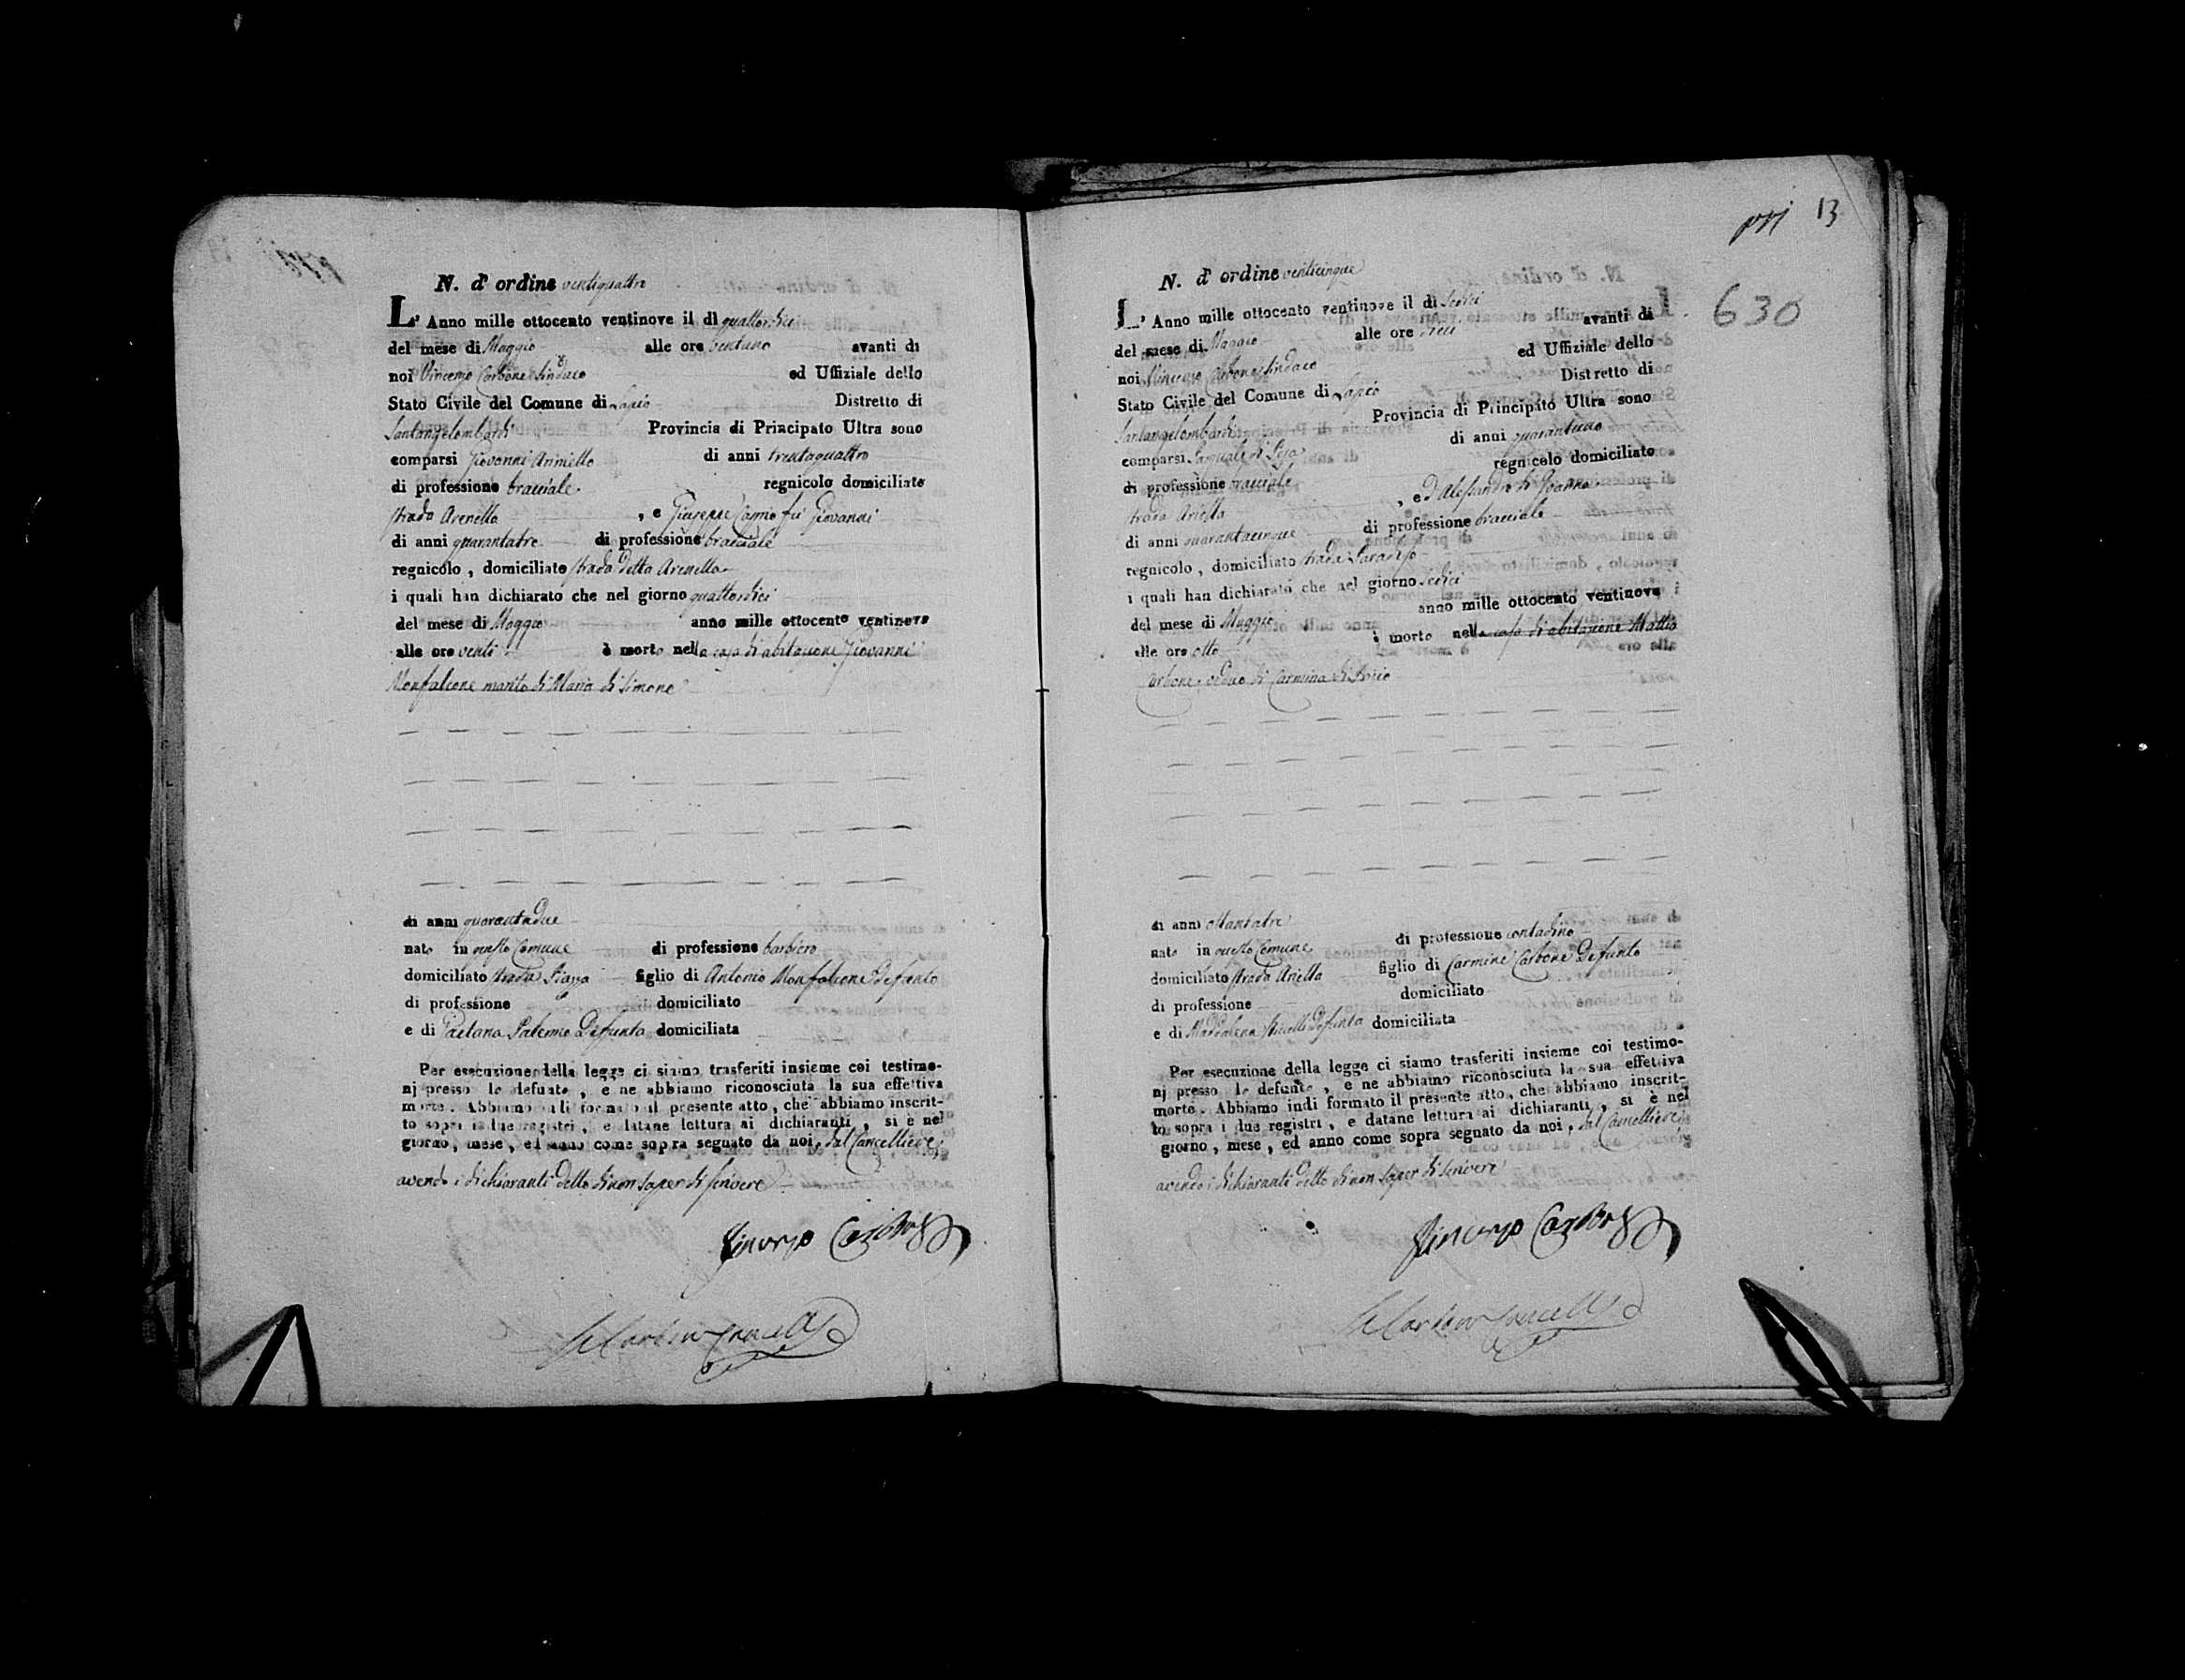 N. d' ordine ventiquattro
L' Anno mille ottocento ventinove il dì quattordici
del mese di Maggio alle ore ventuno avanti di
noi Vincenzo Carbone Sindaco ed Uffiziale dello
Stato Civile del Comune di Lapio Distretto di
Santangelombardi Provincia di Principato Ultra sono
comparsi Giovanni Anniello di anni trentaquattro
di professione bracciale regnicolo domiciliato
strada Arenella , e Giuseppe fù Giovanni
di anni quarantatre di professione bracciale
regnicolo , domiciliato strada detta Arenella
i quali han dichiarato che nel giorno quattordici
del mese di Maggio anno mille ottocento ventinove
alle ore venti è morto nella casa di abitazione Giovanni
Monfalcone marito di Maria di Simone
di anni quarantadue
nato in questo Comune di professione barbiero
domiciliato strada Piazza figlio di Antonio Monfalcone defunto
di professione domiciliato
e di Gaetana Palermo Defunta domiciliata
Per esecuzione della legge ci siamo trasferiti insieme coi testimo-
nj presso lo defunto , e ne abbiamo riconosciuta la sua effettiva
morte . Abbiamo indi formato il presente atto , che abbiamo inscrit-
to sopra i due registri , e datane lettura ai dichiaranti , si è nel
giorno , mese , ed anno come sopra segnato da noi , dal Cancelliere,
avendo i dichiaranti detto di non saper di scrivere
Vincenzo Carbone
pri 13
630
N. d' ordine venticinque
L' Anno mille ottocento ventinove il dì Sedici
del mese di Maggio alle ore dieci avanti di
noi Vincenzo Carbone Sindaco ed Uffiziale dello
Stato Civile del Comune di Lapio Distretto di
Santangelombardi Provincia di Principato Ultra sono
comparsi Pasquale di anni quarantuno
di professione bracciale regnicolo domiciliato
strada Ariella , e D Alessandro di Joanna
di anni quarantacinque di professione bracciale
regnicolo , domiciliato strada
i quali han dichiarato che nel giorno sedici
del mese di Maggio anno mille ottocento ventinove
alle ore otto è morto nella casa di abitazione Mattia
Carbone vedovo di Carmina di
di anni ottantatre
nato in questo Comune di professione contadino
domiciliato strada Ariella figlio di Carmine Carbone Defunto
di professione domiciliato
e di Maddalena Defunta domiciliata
Per esecuzione della legge ci siamo trasferiti insieme coi testimo-
nj presso lo defunto , e ne abbiamo riconosciuta la sua effettiva
morte . Abbiamo indi formato il presente atto , che abbiamo inscrit-
to sopra i due registri , e datane lettura ai dichiaranti , si è nel
giorno , mese , ed anno come sopra segnato da noi , dal Cancelliere,
avendo i dichiaranti detto di non saper di scrivere
Vincenzo Carbone